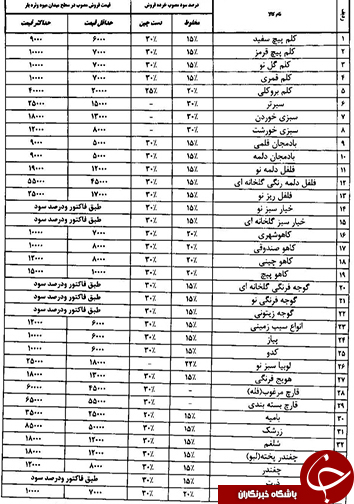 ردیف نام کالا درصد سود مصوب خرده فروشی قیمت فروش مصوب در سطح میدان میوه وتره بار
مخلوط دست چین حداقل قیمت حداکثر قیمت
۱ کلم پیچ سفید ۱۵٪ ۳۰٪ ۶۰۰۰ ۹۰۰۰
۲ کلم پیچ قرمز ۱۵٪ ۳۰٪ ۷۰۰۰ ۱۰۰۰۰
۳ کلم گل نو ۱۵٪ ۳۰٪ ۷۰۰۰ ۱۰۰۰۰
۴ کلم قمری ۱۵٪ ۳۰٪ ۷۰۰۰ ۱۰۰۰۰
۵ کلم بروکلی ۲۰٪ ۲۵٪ ۲۰۰۰۰ ۴۰۰۰۰
۶ سیرتر ۳۰٪ - ۱۵۰۰۰ ۲۵۰۰۰
۷ سبزی خوردن ۳۰٪ - ۱۳۰۰۰ ۱۸۰۰۰
۸ سبزی خورشت ۳۰٪ - ۸۰۰۰ ۱۲۰۰۰
۹ بادمجان قلمی ۱۵٪ ۳۰٪ ۵۰۰۰ ۹۰۰۰
۱۰ بادمجان دلمه ۱۵٪ ۳۰٪ ۵۰۰۰ ۹۰۰۰
۱۱ فلفل دلمه نو ۱۵٪ ۳۰٪ ۱۲۰۰۰ ۱۹۰۰۰
۱۲ فلفل دلمه رنگی گلخانه ای ۱۵٪ ۳۰٪ ۴۵۰۰۰ ۵۵۰۰۰
۱۳ فلفل ریز نو ۱۵٪ ۳۰٪ ۱۷۰۰۰ ۲۵۰۰۰
۱۴ خیار سبز نو ۱۵٪ ۳۰٪ طبق فاکتور ودرصد سود
۱۵ خیار سبز گلخانه ای ۱۵٪ ۳۰٪ طبق فاکتور ودرصد سود
۱۶ کاهوشهری ۲۰٪ ۳۰٪ ۷۰۰۰ ۱۰۰۰۰
۱۷ کاهو صندوقی ۲۰٪ ۳۰٪ ۸۰۰۰ ۱۰۰۰۰
۱۸ کاهو چینی ۲۰٪ ۳۰٪ ۸۰۰۰ ۱۲۰۰۰
۱۹ کاهو پیچ ۲۰٪ ۳۰٪ ۱۰۰۰۰ ۱۵۰۰۰
۲۰ گوجه فرنگی گلخانه ای ۱۵٪ ۳۰٪ طبق فاکتور ودرصد سود
۲۱ گوجه فرنگی نو ۱۵٪ ۳۰٪ طبق فاکتور ودرصد سود
۲۲ گوجه زیتونی ۱۵٪ ۳۰٪ طبق فاکتور ودرصد سود
۲۳ انواع سیب زمینی ۱۵٪ ۳۰٪ ۶۰۰۰ ۱۲۰۰۰
۲۴ پیاز ۱۵٪ ۳۰٪ ۶۰۰۰ ۱۰۰۰۰
۲۵ کدو ۱۵٪ ۳۰٪ ۶۰۰۰ ۱۰۰۰۰
۲۶ لوبیا سبز نو ۲۲٪ - ۱۸۰۰۰ ۲۵۰۰۰
۲۷ هویج فرنگی ۱۵٪ ۳۰٪ ۱۳۰۰۰ ۱۸۰۰۰
۲۸ قارچ مرغوب(فله) - ۳۰٪ ۴۵۰۰۰ ۶۰۰۰۰
۲۹ قارچ بسته بندی - ۳۰٪ ۵۵۰۰۰ ۶۵۰۰۰
۳۰ بامیه ۱۵٪ ۲۰٪ ۲۵۰۰۰ ۳۵۰۰۰
۳۱ زرشک ۱۵٪ ۳۰٪ ۵۰۰۰۰ ۸۵۰۰۰
۳۲ شلغم ۱۵٪ ۳۰٪ ۱۲۰۰۰ ۱۸۰۰۰
چغندر پخته(لبو) ۱۵٪ ۳۰٪ ۱۲۰۰۰ ۱۸۰۰۰
چغندر ۱۵٪ ۳۰٪ ۸۰۰۰ ۱۲۰۰۰
ذرت ۱۵٪ ۳۰٪ طبق فاکتور ودرصد سود
۲۰٪ ۳۰٪ ۷۰۰۰ ۱۰۰۰۰
باشگاه خبرنگاران